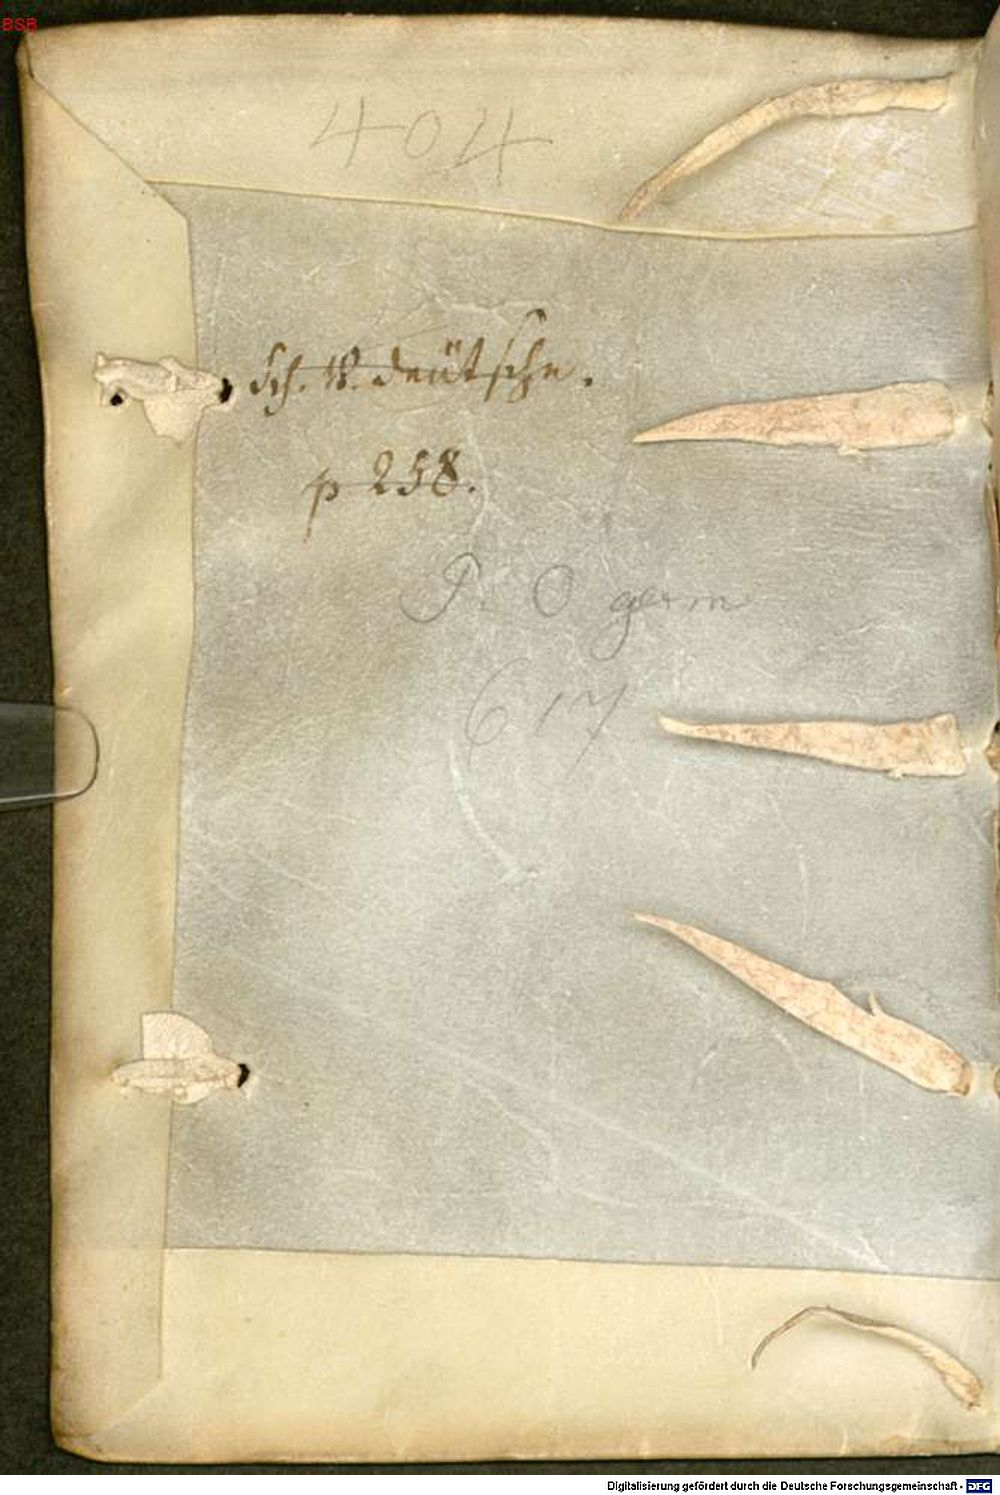 BSB
404
Sch. 18. deütsche.
p 258.
P. O germ
617
Digitalisierung gefördert durch die Deutsche Forschungsgemeinschaft - DFG